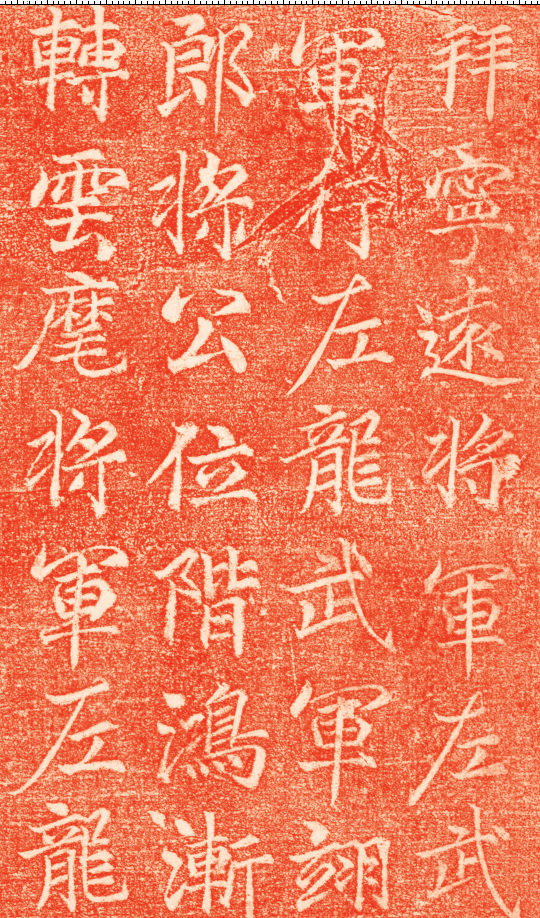 拜寧遠將軍左武
軍行左龍武軍翊
郎將公位階鴻漸
轉雲麾將軍左龍